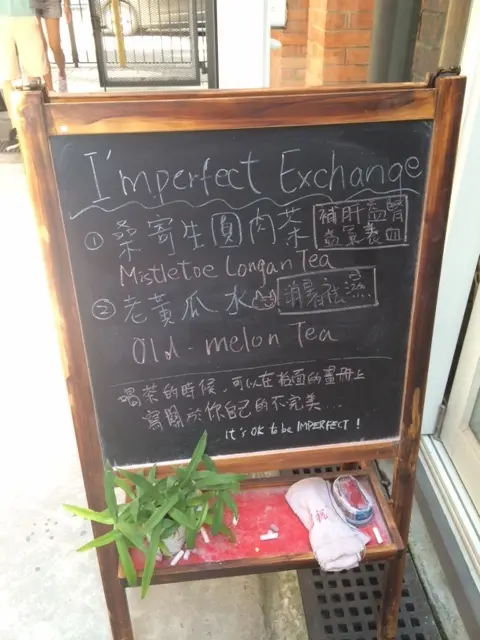 I'mperfect Exchange
① 桑寄生圓肉茶 補肝益腎
益氣養血
Mistletoe Longan Tea
② 老黃瓜水 消暑祛濕
Old-melon Tea
喝茶的時候,可以在枱面的畫冊上
寫關於你自己的不完美...
it's OK to be IMPERFECT!
祝